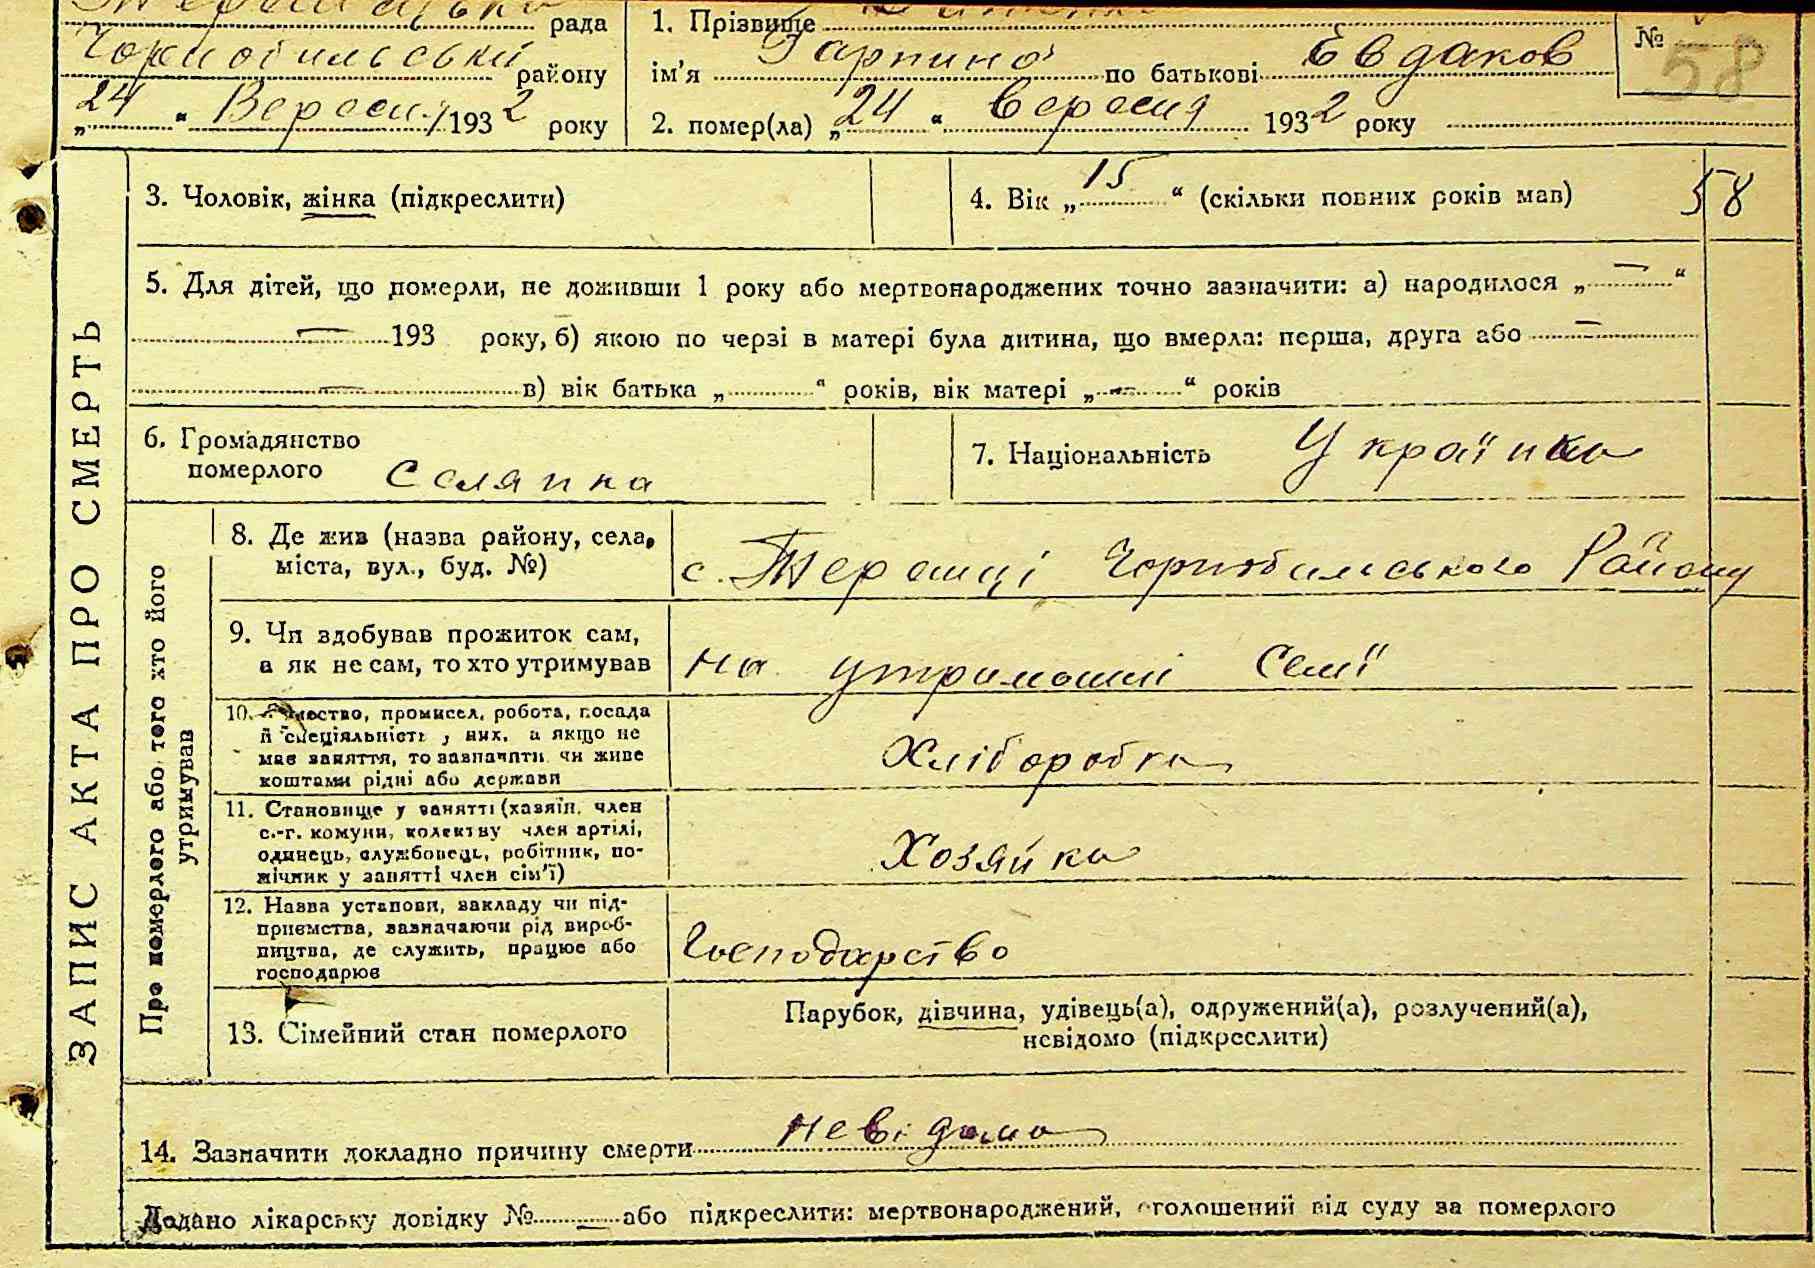 рада 1. Прізвище №
Чорнобильський району ім’я Гарпина по батькові Евдаков 58
„24“ Вересня 1932 року 2. помер(ла) „24“ вересня 1932 року
3. Чоловік, жінка (підкреслити) 4. Вік „15“ (скільки повних років мав) 58
5. Для дітей, що померли, не доживши 1 року або мертвонароджених точно зазначити: а) народилося „—“
— 193 року, б) якою по черзі в матері була дитина, що вмерла: перша, друга або —
— в) вік батька „ “ років, вік матері „—“ років
6. Громадянство
померлого Селянка 7. Національність Українка
8. Де жив (назва району, села,
міста, вул., буд. №) с. Теремці Чорнобильського Району
9. Чи здобував прожиток сам,
а як не сам, то хто утримував на утриманні Семї
10. промисел, робота, посада
й спеціяльність у них, а якщо не
має заняття, то зазначити чи живе
коштами рідні або держави Хліборобка
11. Становище у занятті (хазяїн, член
с.-г. комуни, колективу член артілі,
одинець, службовець, робітник, по-
мічник у занятті член сім’ї) Хозяйка
12. Назва установи, закладу чи під-
приємства, зазначаючи рід вироб-
ництва, де служить, працює або
господарює Господарство
13. Сімейний стан померлого Парубок, дівчина, удівець(а), одружений(а), розлучений(а),
невідомо (підкреслити)
14. Зазначити докладно причину смерти невідома
Додано лікарську довідку № — або підкреслити: мертвонароджений, оголошений від суду за померлого
ЗАПИС АКТА ПРО СМЕРТЬ
Про померлого або того хто його
утримував